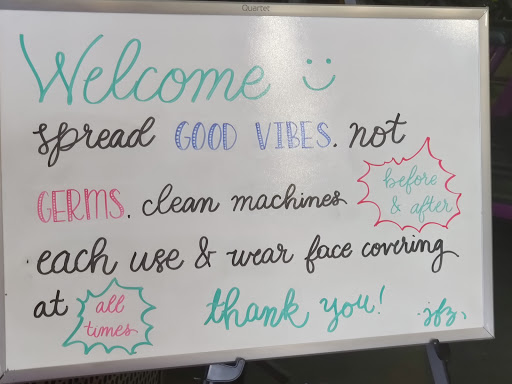 Quartet
Welcome
spread GOOD VIBES. not
GERMS. clean machines before
& after
each use & wear face covering
at all
times
thank you!